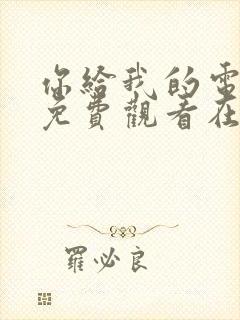 你給我的電
免費觀看在
羅必良